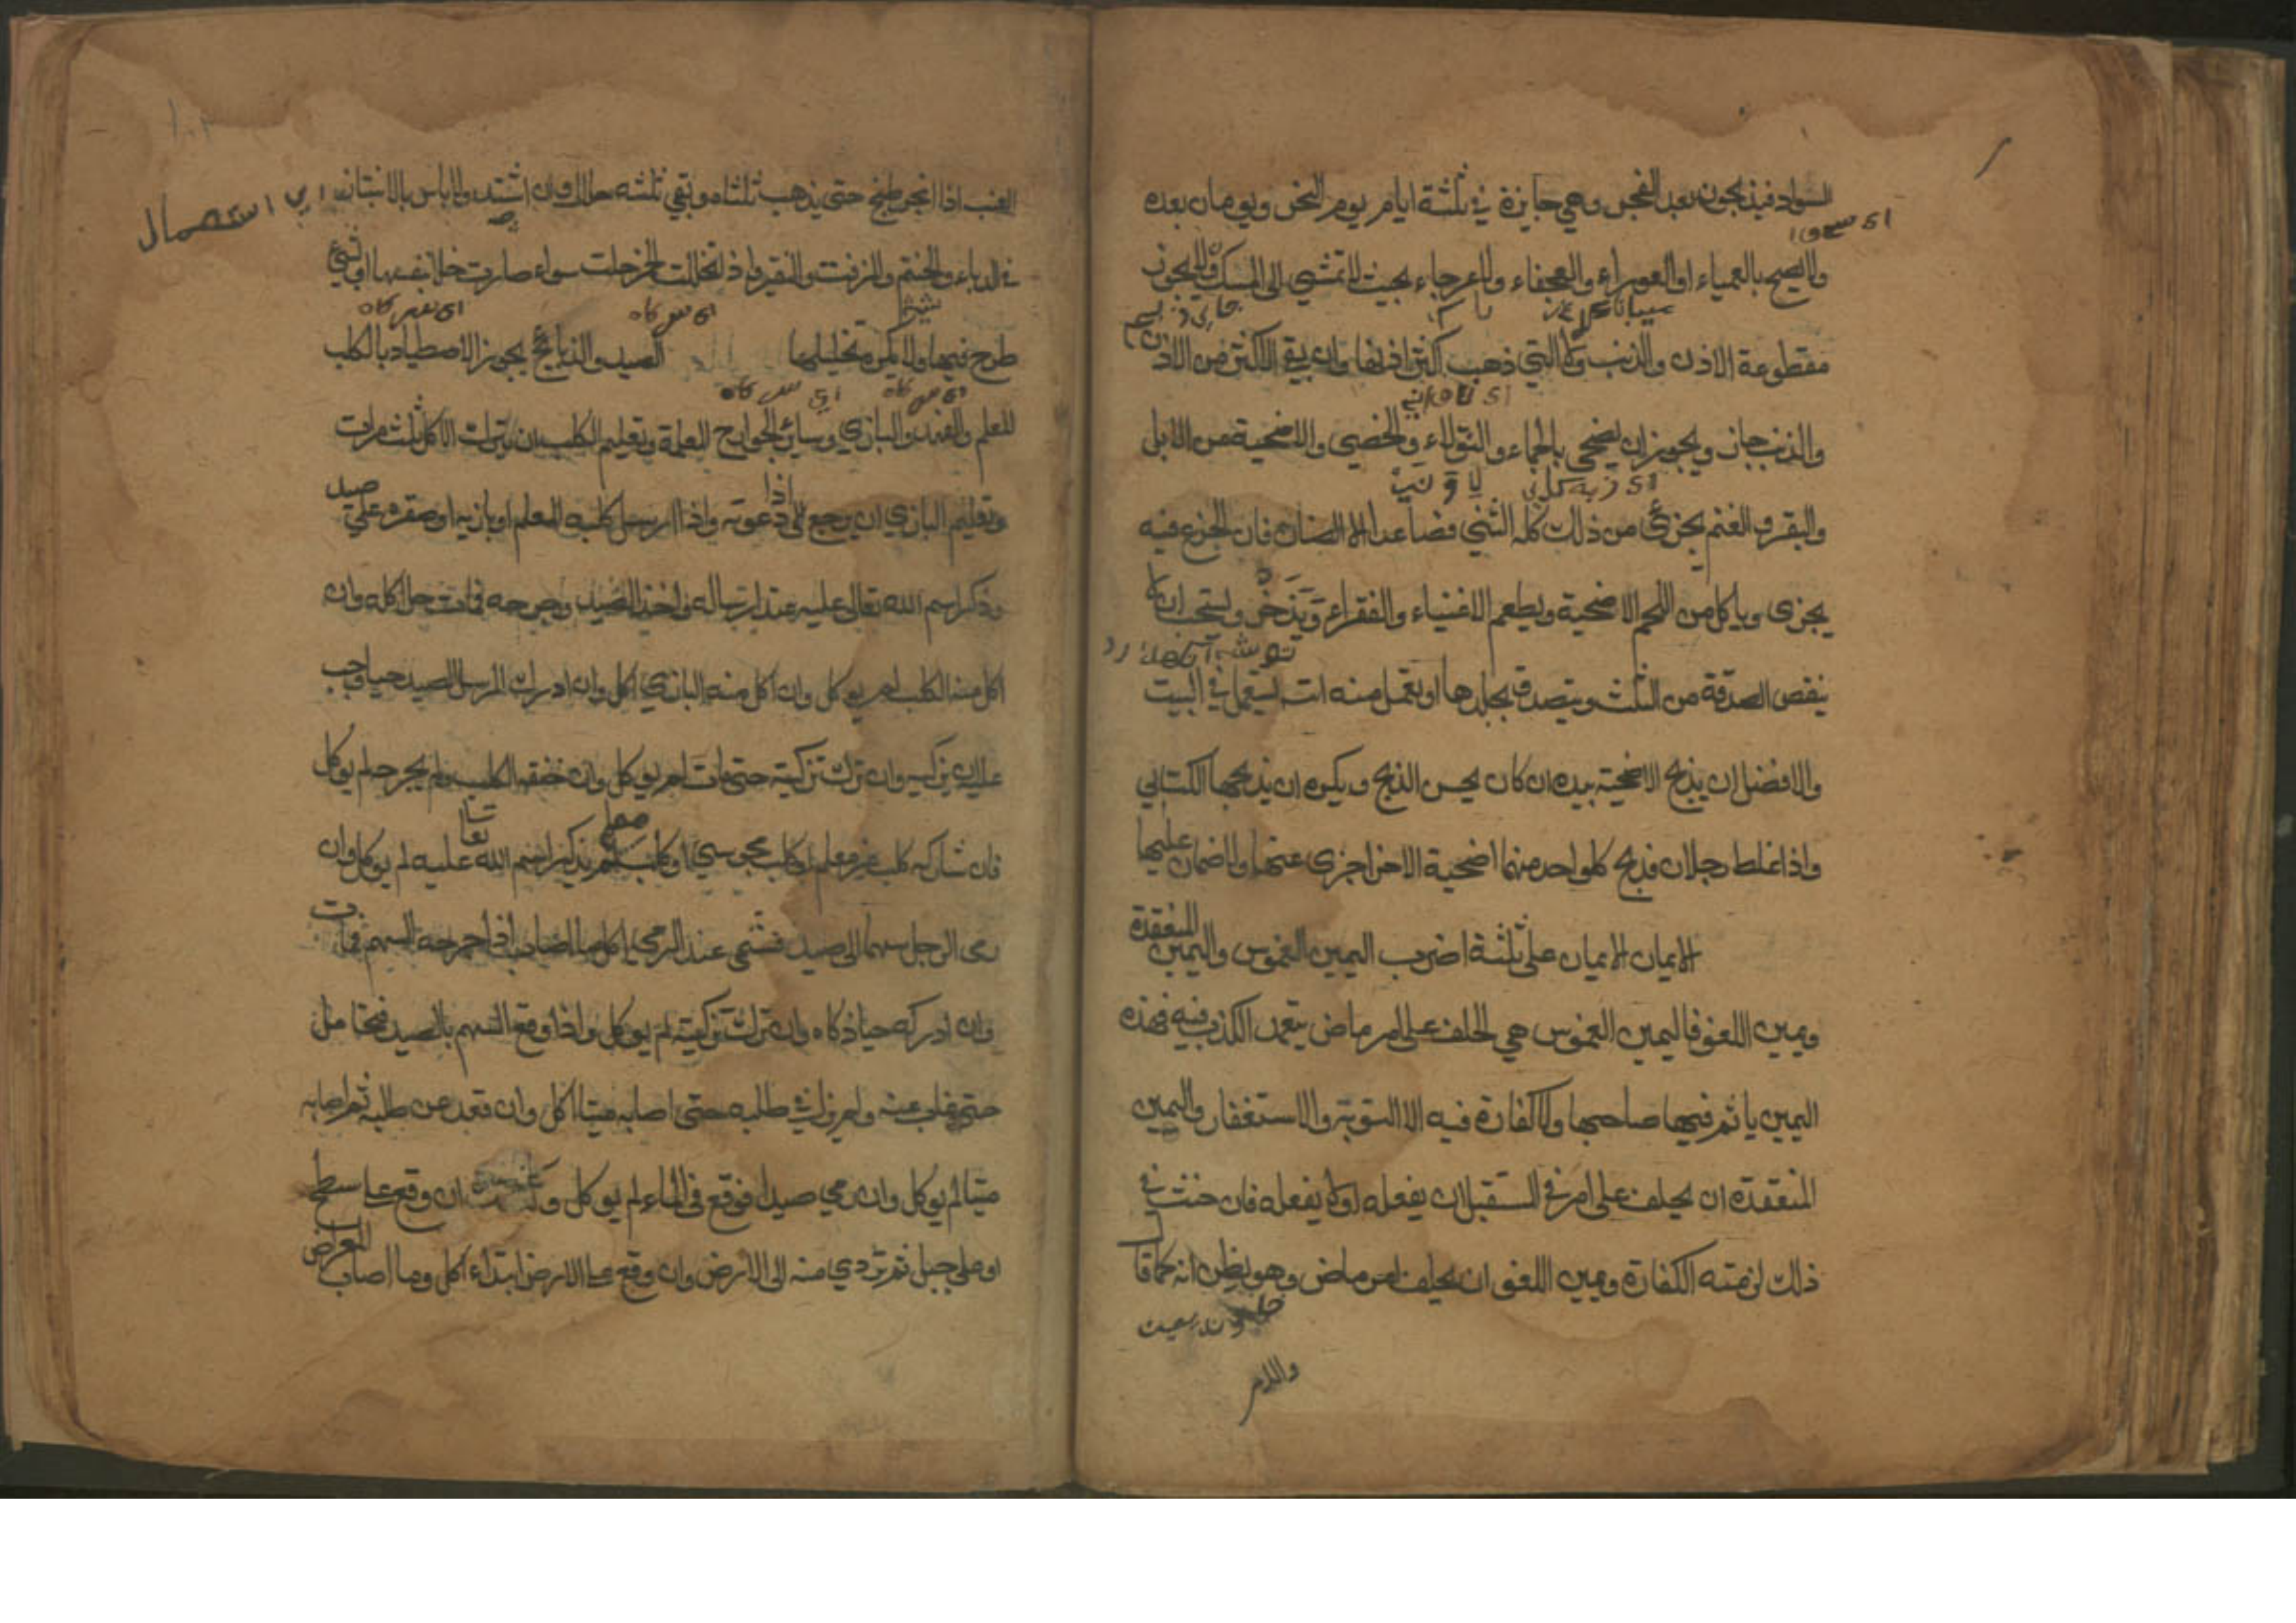 السواد فيذبحون بعد الفجر وهي جايزة في ثلثة ايام يوم النحر ويومان بعده
ولا يضح بالعمياء او العوراء والعجفاء والعرجاء بحيث لا تمشي الى المنسك ولا يجوز
مقطوعة الاذن والذنب ولا التي ذهب اكثر اذنها وان بقي الاكثر من الاذن
والذنب جاز ويجوز ان يضحي بالجماء والثولاء والخصي والاضحية من الابل
والبقر والغنم يجزئ من ذلك كله الثني فصاعدا الا الضان فان الجزع فيه
يجزى وياكل من اللحم الاضحية ويطعم الاغنياء والفقراء ويدخر ويستحب ان لا
ينقص الصدقة من الثلث ويتصدق بجلدها او يعمل منه الت يستعمل في البيت
والافضل ان يذبح الاضحية بيده ان كان يحسن الذبح ويكره ان يذبحها الكتابي
واذا غلط رجلان فذبح كلواحد منهما اضحية الاخر اجزى عنهما ولا ضمان عليهما
الايمان الايمان على ثلثة اضرب اليمين الغموس واليمين المنعقدة
ويمين اللغو فاليمين الغموس هي الحلف على امر ماض يتعمد الكذب فيه فهذه
اليمين ياثم فيها صاحبها ولا كفارة فيه الا التوبة والاستغفار واليمين
المنعقدة ان يحلف على امر في المستقبل ان يفعله او لا يفعله فان حنث في
ذلك لزمته الكفارة ويمين اللغو ان يحلف امر ماض وهو يظن انه كما قال
والامر
العنب اذا طبخ حتى يذهب ثلثاه وبقي ثلثه حلال وان اشتد ولا باس بالانتباذ
اي استعمال
في الدباء والحنتم والمزفت والنقير واذ تخللت الخمر حلت سواء صارت خلا بنفسها او بشئ
طرح فيها ولا يكره تخليلها الصيد والذبائح يجوز الاصطياد بالكلب
المعلم والفهد والبازي وسائر الجوارح المعلمة وتعليم الكلب ان يترك الاكل ثلث مرات
وتعليم البازي ان يرجع اذا دعوته واذا ارسل كلبه المعلم او بازيه او صقره على صيد
وذكر اسم الله تعالى عليه عند ارساله فاخذ الصيد وجرحه فمات حل اكله وان
اكل منه الكلب لم يوكل وان اكل منه البازي اكل وان ادرك المرسل الصيد حيا وجب
عليه ان يزكيه وان ترك تزكيته حتى مات لم يوكل وان خنقه الكلب ولم يجرحه لم يوكل
فان شاركه كلب غير معلم او كلب مجوسي او كلب لم يذكر اسم الله عليه لم يوكل وان
رمى الرجل سهما الى صيد فسمى عند الرمي اكل ما اصاب اذا جرحه السهم فمات
وان ادركه حيا ذكاه وان ترك تزكيته لم يوكل واذا وقع السهم بالصيد فتحامل
حتى غاب عنه ولم يزل في طلبه حتى اصابه ميتا اكل وان قعد عن طلبه ثم اصابه
ميتا لم يوكل وان رمي صيدا فوقع في الماء لم يوكل ان وقع على سطح
او على جبل ثم تردي منه الى الارض وان وقع على الارض ابتداء اكل وما اصاب المعراض